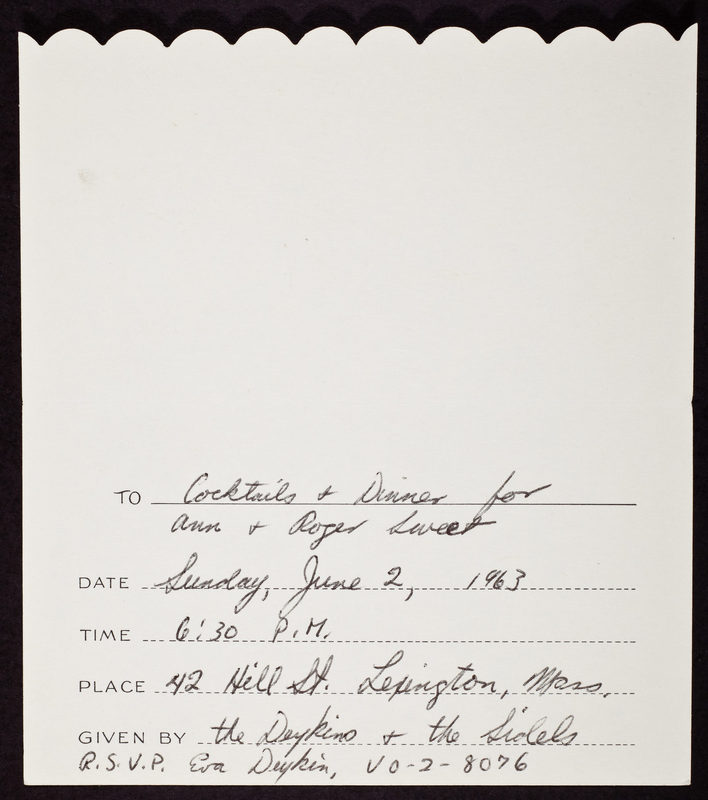 TO Cocktails + Dinner for
Ann + Roger Sweet
DATE Sunday, June 2, 1963
TIME 6:30 P.M.
PLACE 42 Hill St. Lexington, Mass.
GIVEN BY the Deykins + the Sidels
R.S.V.P. Eva Deykin, VO-2-8076